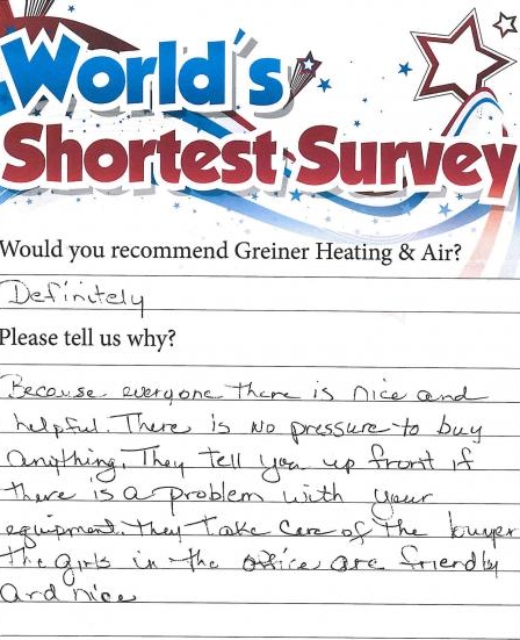 World's
Shortest Survey
Would you recommend Greiner Heating & Air?
Definitely
Please tell us why?
Because everyone there is nice and
helpful. There is no pressure to buy
anything. They tell you up front if
there is a problem with your
equipment. They Take Care of the buyer
The girls in the office are friendly
and nice